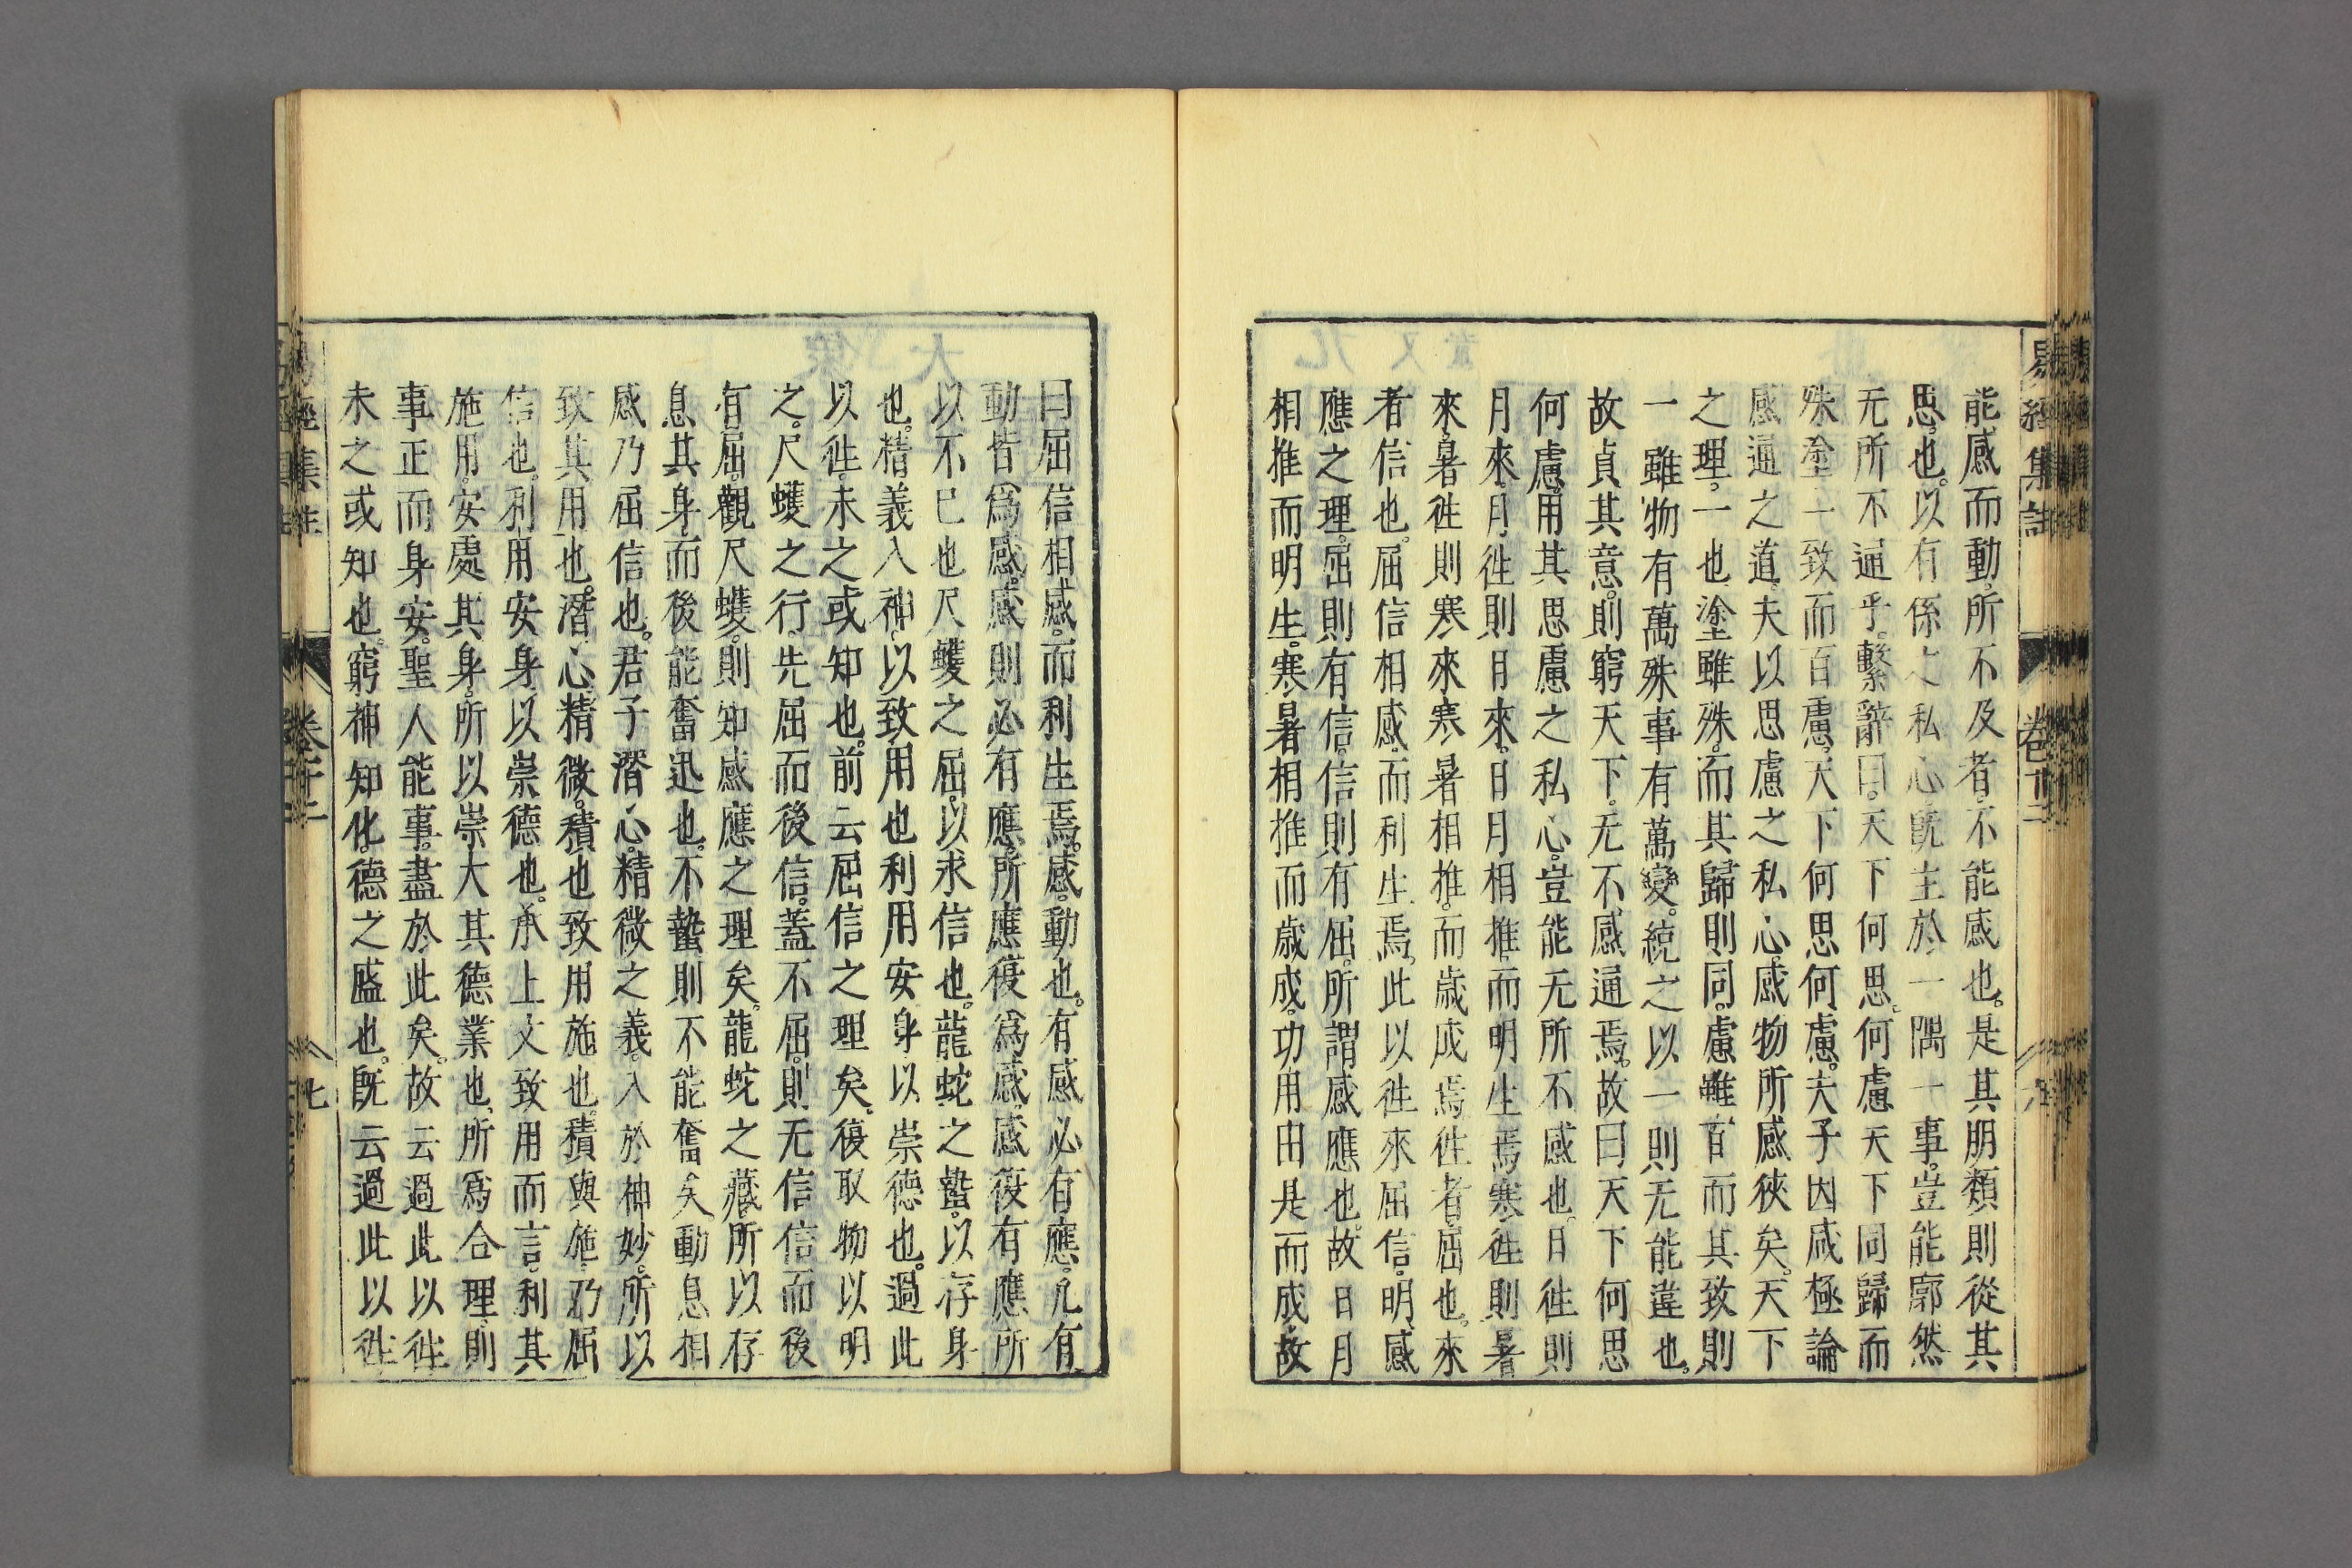 易經集註 卷十二
能感而動。所不及者。不能感也。是其朋類則從其
思。也。以有係之私心。旣主於一隅一事。豈能廓然
无所不通乎。繫辭曰。天下何思。何慮天下同歸而
殊塗一致而百慮。天下何思何慮。夫子因咸極論
感通之道。夫以思慮之私心。感物所感狹矣。天下
之理。一也塗雖殊。而其歸則同。慮雖百而其致則
一雖物有萬殊事有萬變。統之以一則无能違也。
故貞其意。則窮天下。无不感通焉。故曰天下何思
何慮。用其思慮之私心。豈能无所不感也。日徃則
月來。月徃則日來。日月相推而明生焉寒徃則暑
來。暑徃則寒來寒暑相推。而歲成焉徃者。屈也。來
者信也。屈信相感。而利生焉。此以徃來屈信。明感
應之理。屈則有信。信則有屈。所謂感應也。故日月
相推而明生。寒暑相推而歲成。功用由是而成。故
曰屈信相感。而利生焉。感。動也。有感必有應。凡有
動皆爲感。感則必有應。所應復爲感。感復有應所
以不已也尺蠖之屈。以求信也。龍蛇之蟄。以存身
也。精義入神。以致用也利用安身以崇德也。過此
以徃。未之或知也。前云屈信之理矣。復取物以明
之。尺蠖之行。先屈而後信。蓋不屈。則无信信而後
有屈。觀尺蠖。則知感應之理矣。龍蛇之藏。所以存
息其身。而後能奮迅也。不蟄則不能奮矣。動息相
感乃屈信也。君子潛心。精微之義。入於神妙。所以
致其用也。潛心精微。積也致用施也。積與施。乃屈
信也。利用安身以崇德也。承上文致用而言。利其
施用。安處其身。所以崇大其德業也。所爲合理。則
事正而身安。聖人能事。盡於此矣。故云過此以徃
未之或知也。窮神知化。德之盛也。旣云過此以徃
易經集註 卷十二 七